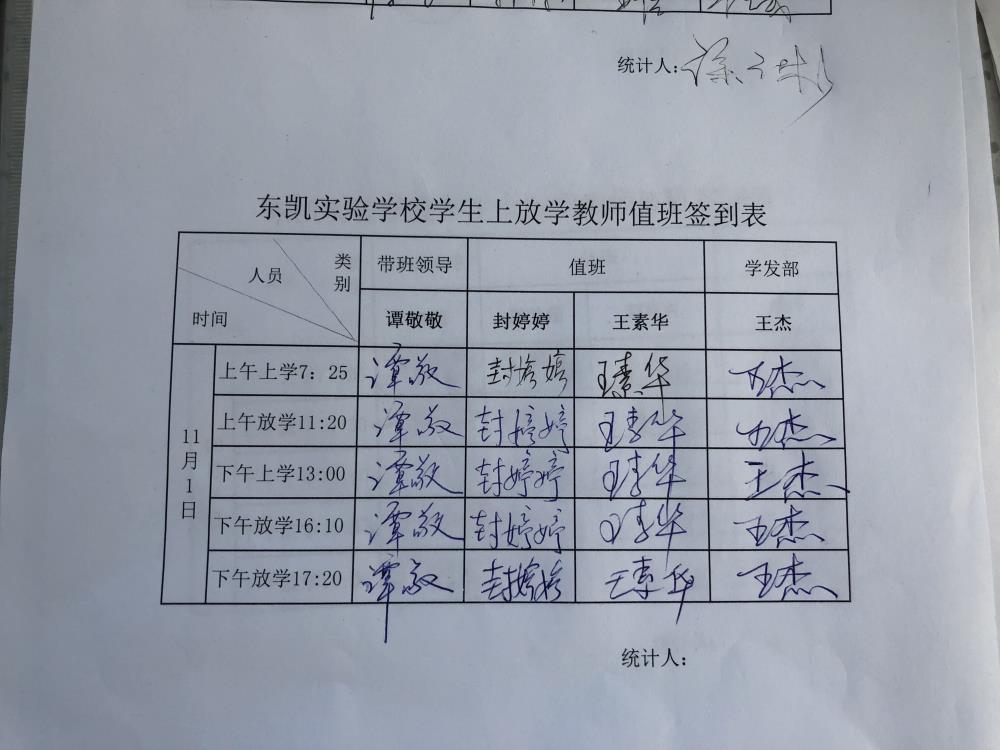 统计人：
东凯实验学校学生上放学教师值班签到表
人员 类别 时间 带班领导 值班 学发部
谭敬敬 封婷婷 王素华 王杰
11月1日
上午上学7：25 谭敬 封婷婷 王素华 王杰
上午放学11:20 谭敬 封婷婷 王素华 王杰
下午上学13:00 谭敬 封婷婷 王素华 王杰
下午放学16:10 谭敬 封婷婷 王素华 王杰
下午放学17:20 谭敬 封婷婷 王素华 王杰
统计人：